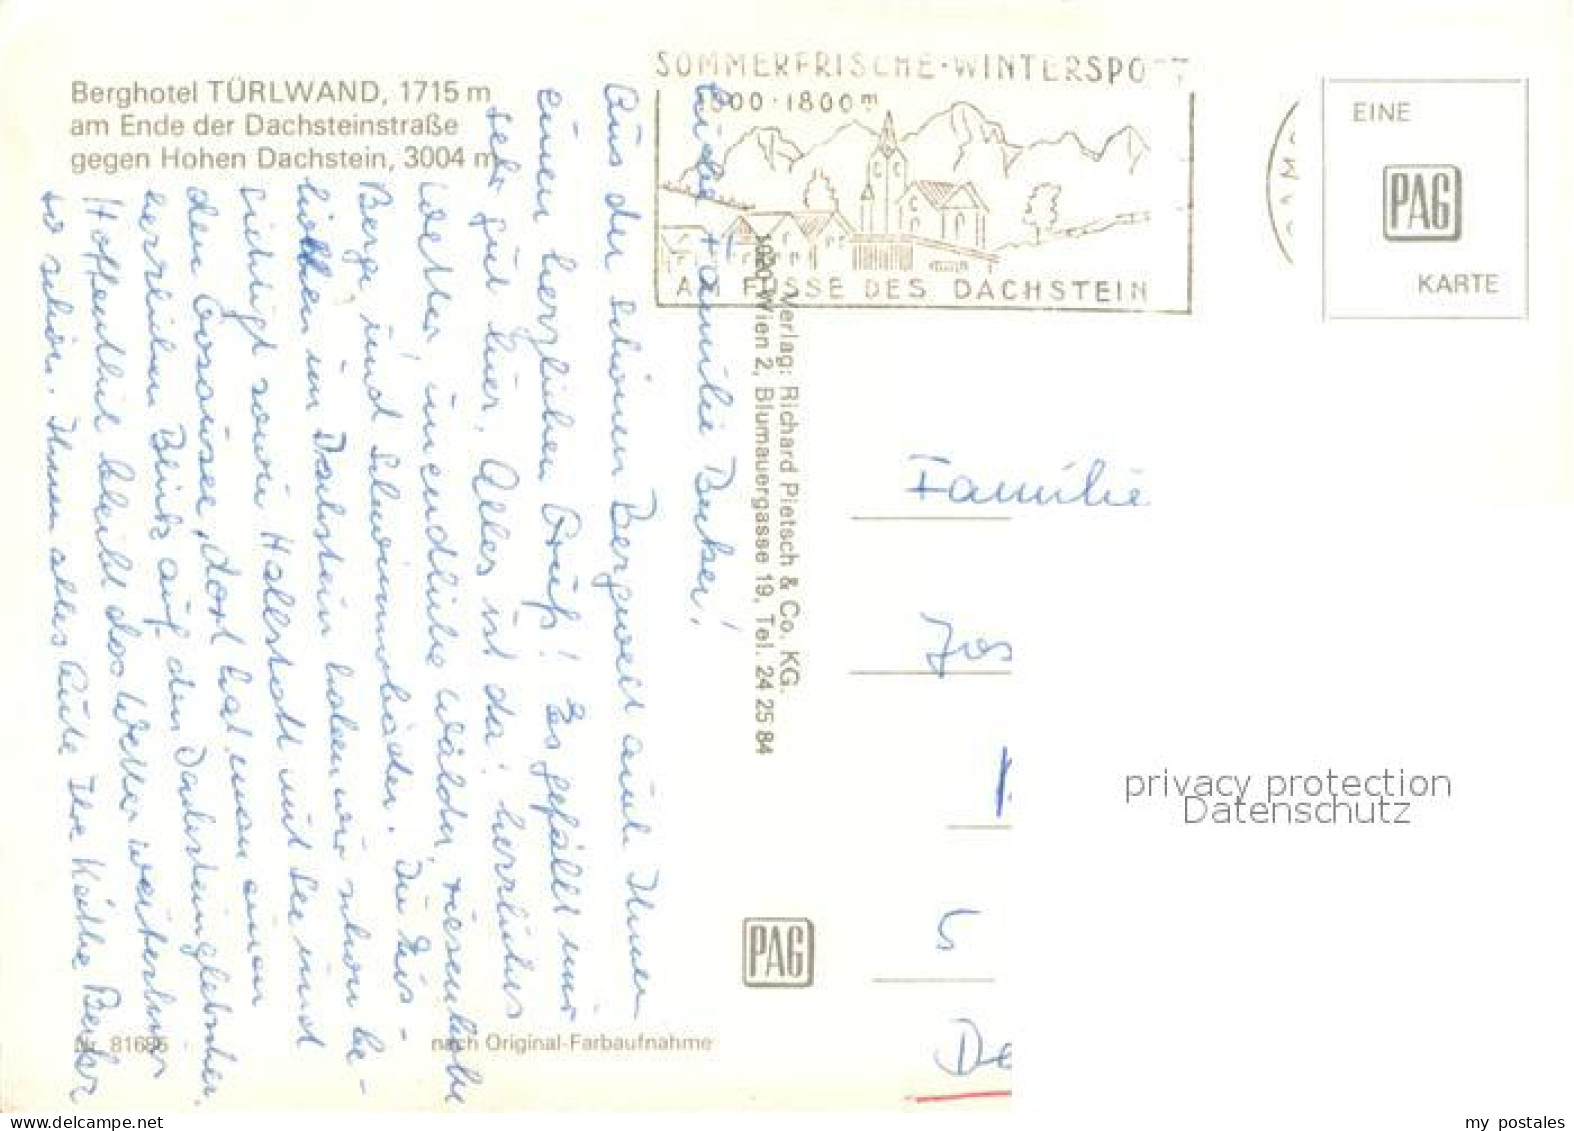 Berghotel TÜRLWAND, 1715 m
am Ende der Dachsteinstraße
gegen Hohen Dachstein, 3004 m
SOMMERFRISCHE·WINTERSPO
800·1800 m
AM FUSSE DES DACHSTEIN
EINE
PAG
KARTE
Liebe Familie Becker!
Aus der schönen Bergwelt auch Ihnen
einen herzlichen Gruß! Es gefällt mir
sehr gut hier. Alles ist da! herrliches
Wetter, unendliche Wälder, riesenhohe
Berge und Schwimmbäder. Die Eis-
höhlen im Dachstein haben wir schon be-
sichtigt sowie Hallstatt mit See und
den Gosausee, dort hat man einen
herrlichen Blick auf den Dachsteingletscher.
Hoffentlich bleibt das Wetter weiterhin
so schön. Ihnen alles Gute Ihre Käthe Becker
Verlag: Richard Pietsch & Co. KG.
1020 Wien 2, Blumauergasse 19, Tel. 24 25 84
PAG
Familie
Jos
De
Nr. 81686
nach Original-Farbaufnahme
privacy protection
Datenschutz
my postales